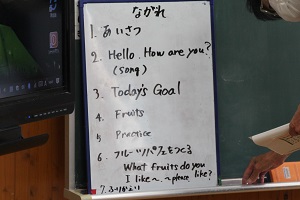 ながれ
1. あいさつ
2. Hello. How are you?
(song)
3. Today's Goal
4. Fruits
5. Practice
6. フルーツパフェをつくる
What fruits do you like?
I like ～. ～ please.
7. ふりかえり